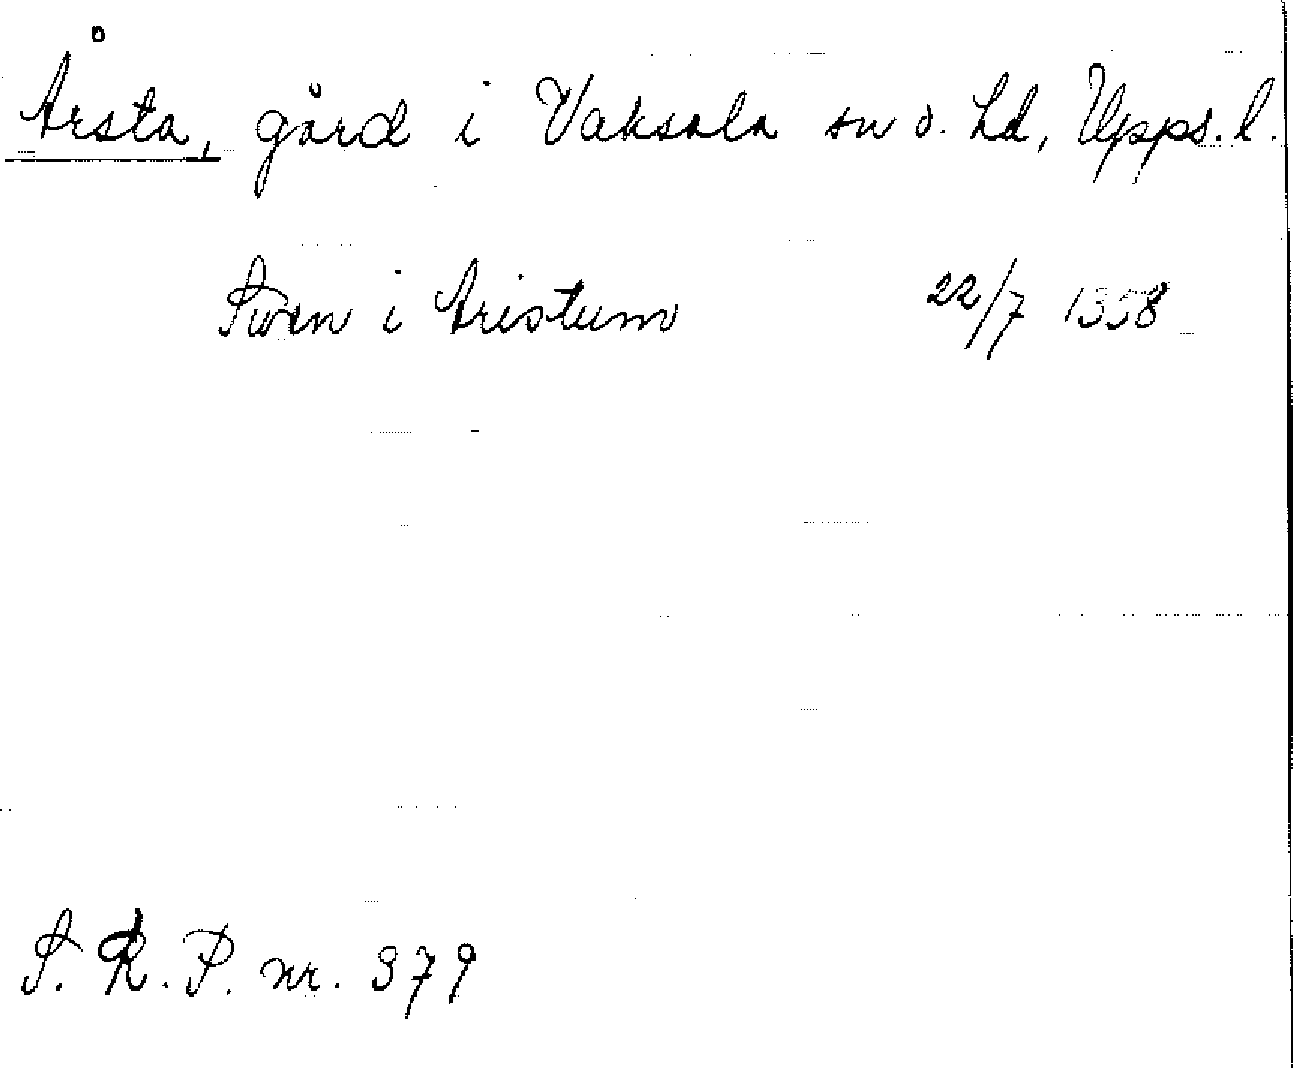 Årsta, gård i Vaksala sn o. hd, Upps. l.
Swen i Aristum 22/7 1358
S. R. P. nr. 379